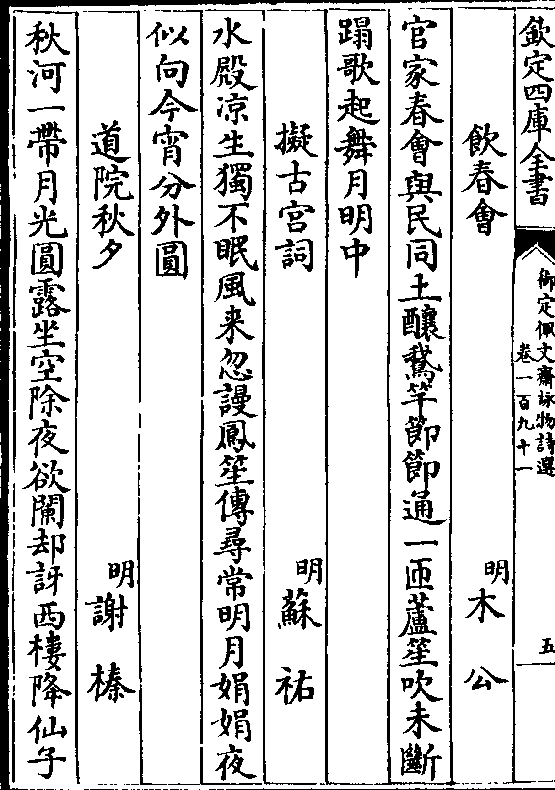 欽定四庫全書
御定佩文齋詠物詩選
卷一百九十一
五
飲春會
明木公
官家春會與民同土釀鵞竿節節通一匝蘆笙吹未斷
蹋歌起舞月明中
擬古宮詞
明蘇祐
水殿凉生獨不眠風来忽謾鳳笙傳尋常明月娟娟夜
似向今宵分外圓
道院秋夕
明謝榛
秋河一帶月光圓露坐空除夜欲闌却訝西樓降仙子